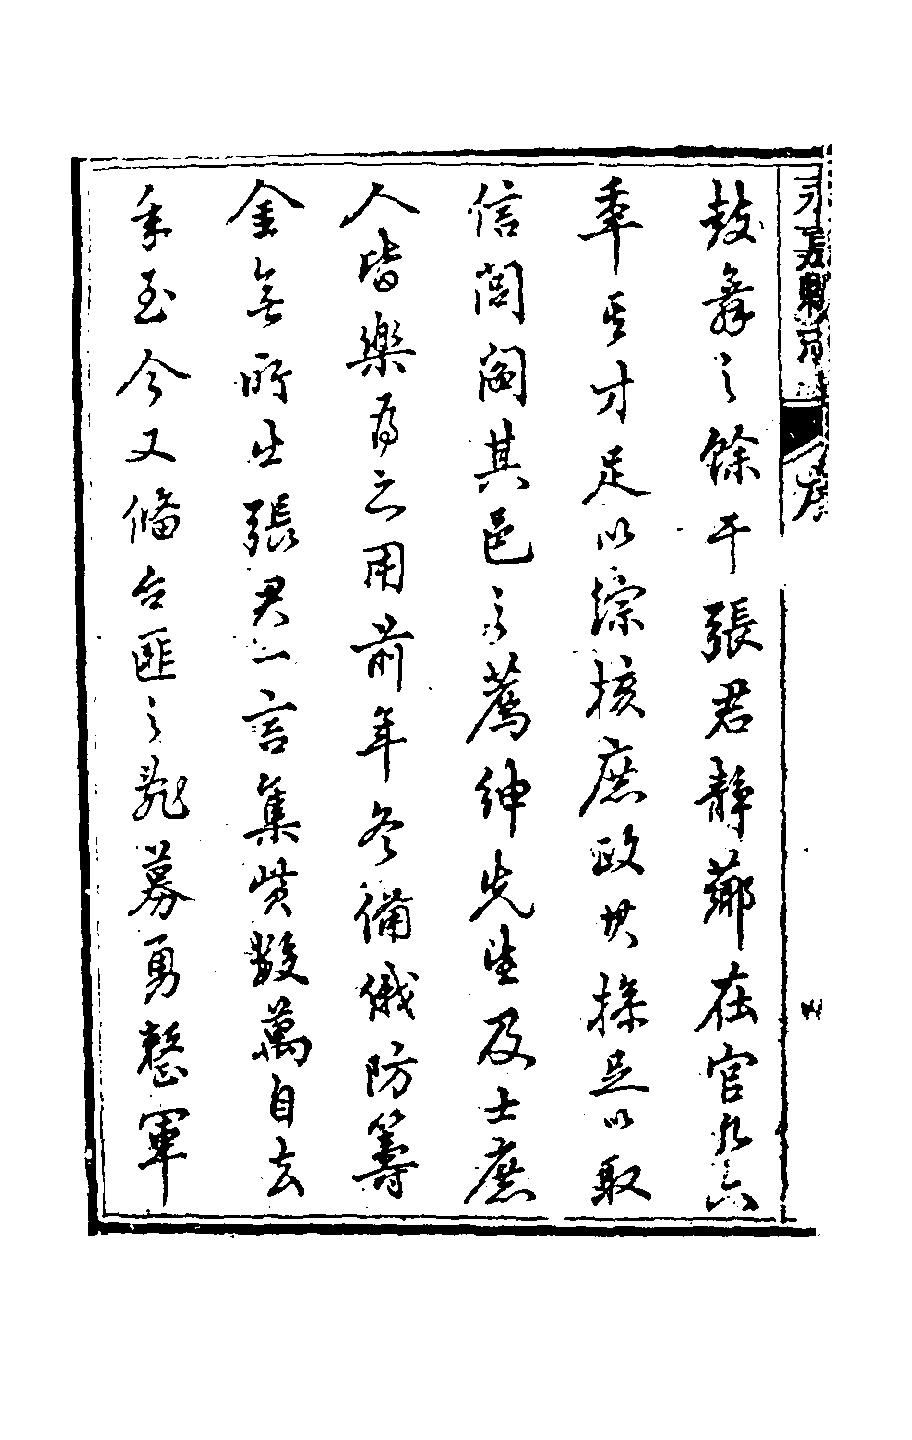 鼓舞之餘干張君靜薌在官九六
年其才足以綜核庶政其操足以取
信閭閻其邑之薦紳先生及士庶
人皆樂為之用前年冬備俄防籌
金無所出張君一言集貲數萬自去
年至今又備台匪之亂募勇整軍
永嘉縣志
序
四